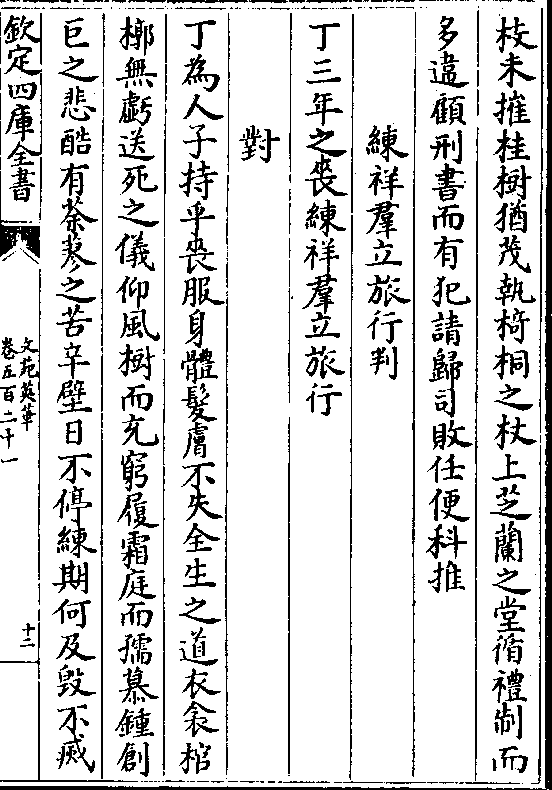 枝未摧桂樹猶茂執椅桐之杖上芝蘭之堂循禮制而
多違顧刑書而有犯請歸司敗任便科推
練祥羣立旅行判
丁三年之喪練祥羣立旅行
對
丁為人子持乎喪服身體髮膚不失全生之道衣衾棺
槨無虧送死之儀仰風樹而充窮履霜庭而孺慕鍾創
巨之悲酷有荼蓼之苦辛壁日不停練期何及毀不烕
欽定四庫全書
文苑英華
卷五百二十一
十二